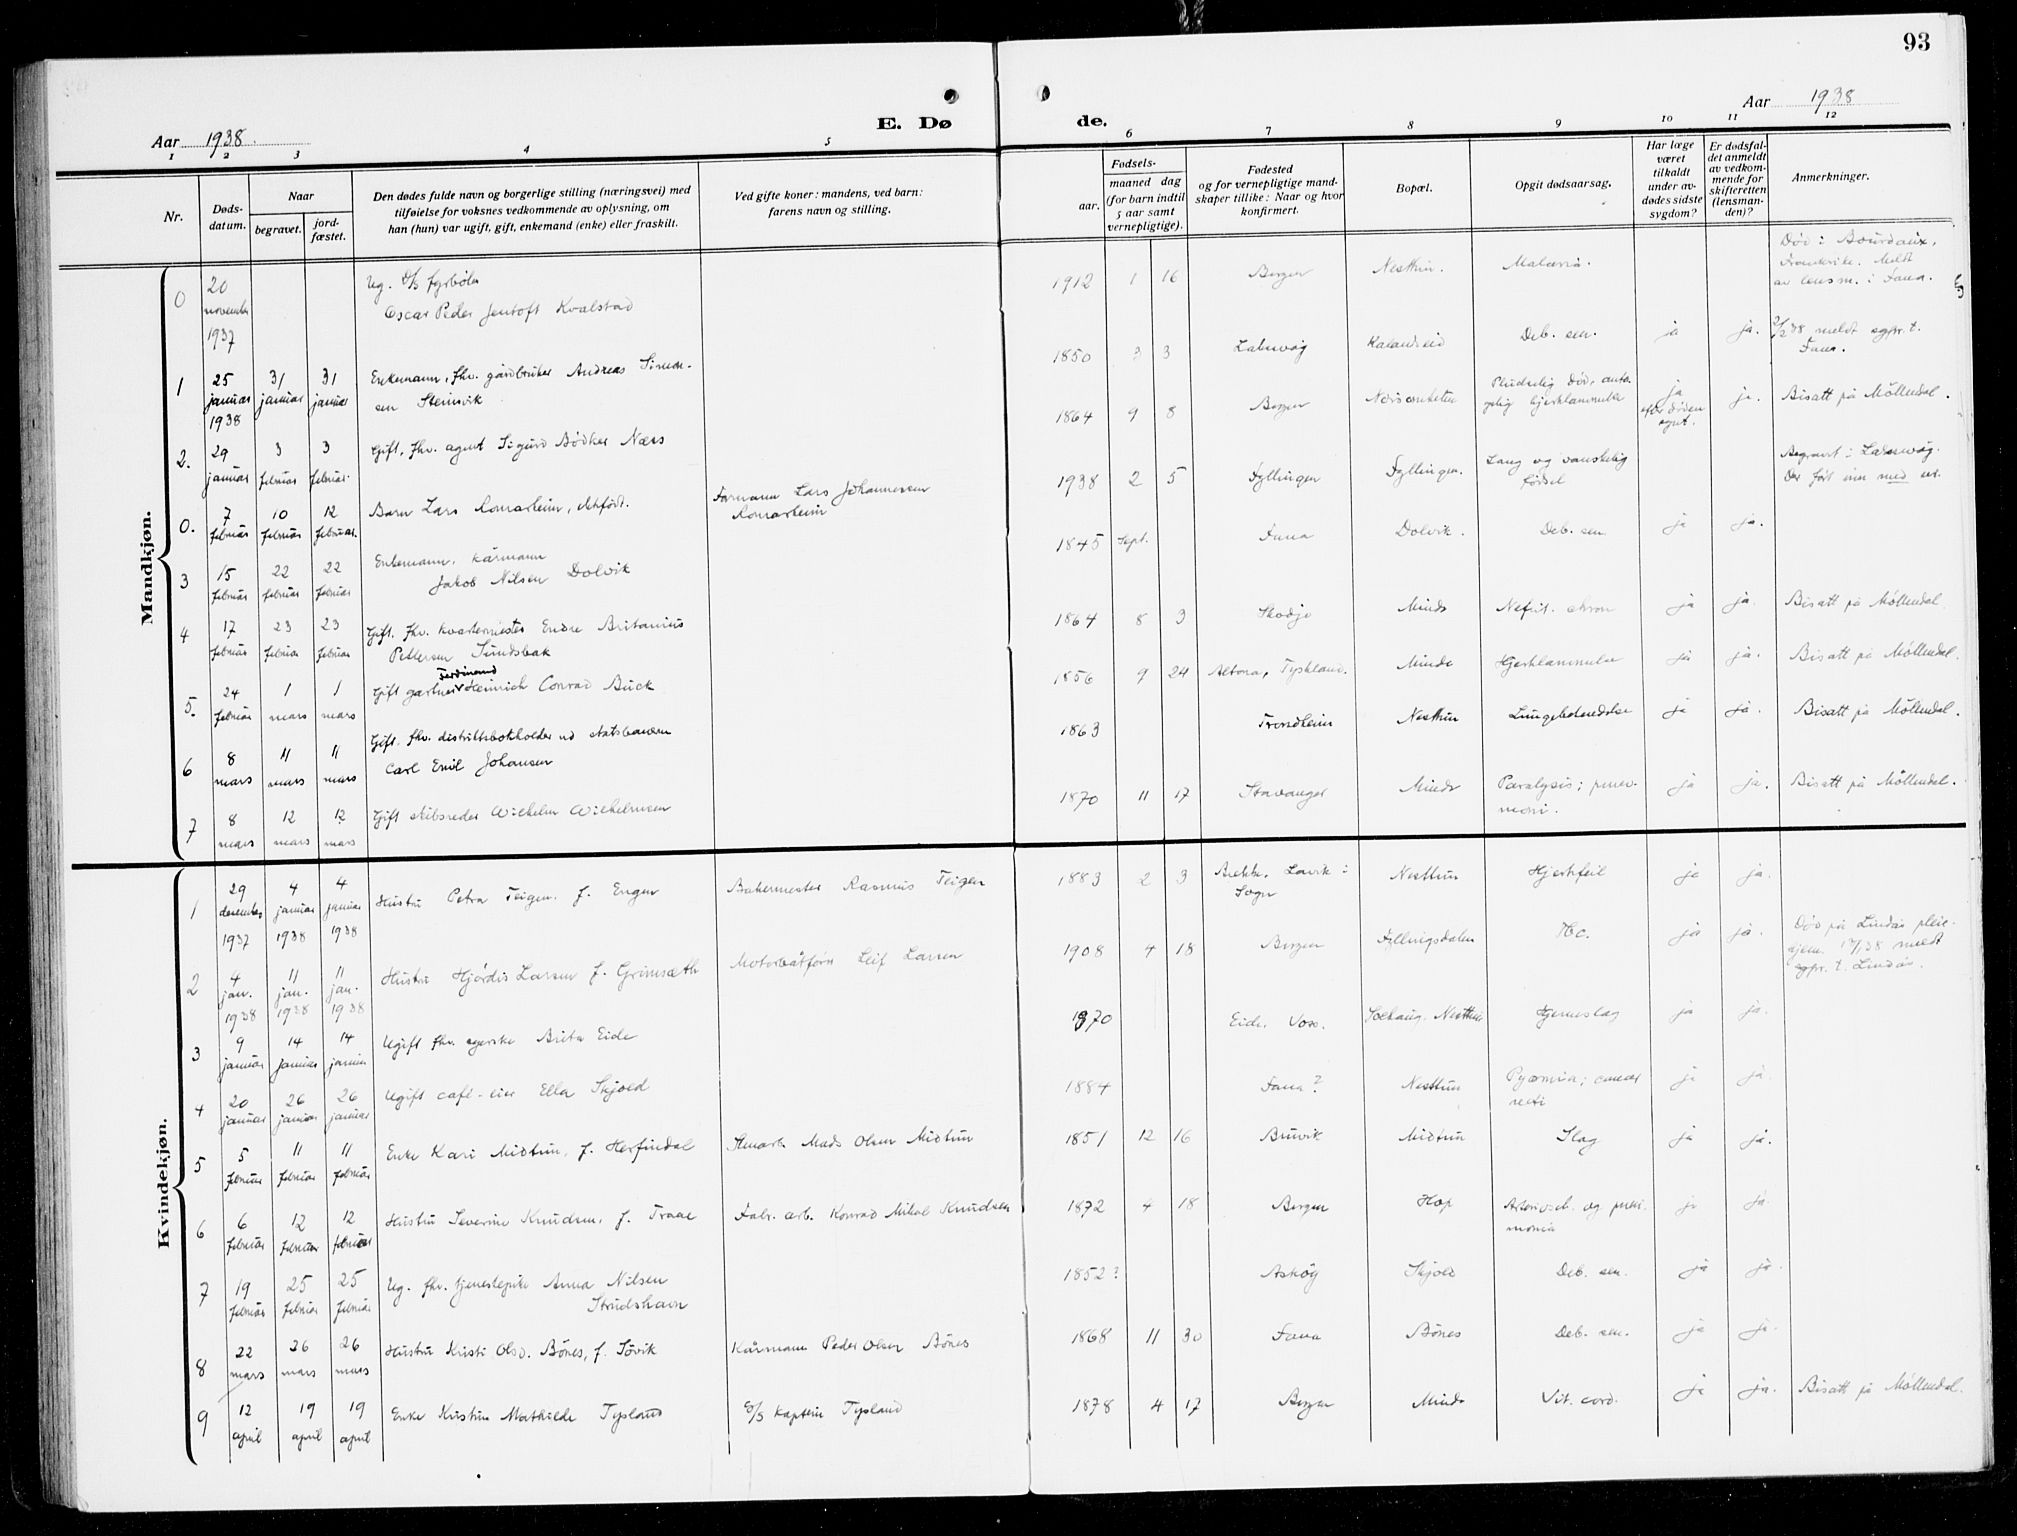 93
Aar 1938.
E. Dø
de.
Aar 1938
1 2 3 4 5 6 7 8 9 10 11 12
Nr.
Døds-
datum.
Naar
begravet.
jord-
fæstet.
Den dødes fulde navn og borgerlige stilling (næringsvei) med
tilføielse for voksnes vedkommende av oplysning, om
han (hun) var ugift, gift, enkemand (enke) eller fraskilt.
Ved gifte koner: mandens, ved barn:
farens navn og stilling.
Fødsels-
aar.
maaned dag
(for barn indtil
5 aar samt
vernepligtige).
Fødested
og for vernepligtige mand-
skaper tillike: Naar og hvor
konfirmert.
Bopæl.
Opgit dødsaarsag.
Har læge
været
tilkaldt
under av-
dødes sidste
sygdom?
Er dødsfal-
det anmeldt
av vedkom-
mende for
skifteretten
(lensman-
den)?
Anmerkninger.
Mandkjøn.
0 20 november 1937 Ug. D/S fyrbøter
Oscar Peder Jentoft Kvalstad
1912 1 16 Bergen Nesttun. Malaria. Død i Bourdaux,
Frankrike. Meldt
av lensm. i Fana.
1 25 januar 1938 31 januar 31 januar Enkemann, fhv. gårdbruker Andreas Simon-
sen Steinsvik
1850 3 3 Laksevåg Kalandseid Deb. sen. ja ja. 2/2 38 meldt sgpr. t.
Fana.
2. 29 januar 3 februar 3 februar. Gift, fhv. agent Sigurd Bødker Næss
1864 9 8 Bergen Pludselig død, anta-
gelig hjerklammelse ja
efter døden ja. Bisatt på Møllendal.
0. 7 februar 10 februar 12 februar. Barn Lars Romarheim, dødfødt. Formann Lars Johannessen
Romarheim
1938 2 5 Fyllingen Fyllingen. Lang og vanskelig
fødsel Begravt i Laksevåg.
Der ført inn med nr.
3 15 februar 22 februar 22 februar Enkemann, kårmann
Jakob Nilsen Dolvik
1845 Sept. Fana Dolvik. Deb. sen. ja ja.
4 17 februar 23 februar 23 februar Gift, fhv. kvartermester Endre Britanius
Pettersen Sundsbak
1864 8 3 Skodje Minde Nefrit. chron ja ja. Bisatt på Møllendal.
5. 24 februar 1 mars 1 mars Ferdinand
Gift gartner Heinrich Conrad Buck
1856 9 24 Altona, Tyskland. Minde Hjerklammelse ja ja. Bisatt på Møllendal.
6 8 mars 11 mars 11 mars Gift. fhv. distriktsbokholder ved statsbanen
Carl Emil Johansen
1863 Trondheim Nesttun Lungebetendelse ja ja. Bisatt på Møllendal.
7 8 mars 12 mars 12 mars Gift skibsreder Wilhelm Wilhelmsen
1870 11 17 Stavanger Minde Paralysis; pnev-
moni. ja ja. Bisatt på Møllendal.
Kvindekjøn.
1 29 desember 1937 4 januar 1938 4 januar 1938 Hustru Petra Teigen. f. Engen Bakermester Rasmus Teigen
1883 2 3 Brekke, Lavik i
Sogn Nesttun Hjertefeil ja ja.
2 4 jan. 1938 11 jan. 1938 11 jan. 1938 Hustru Hjørdis Larsen f. Grimsæth Motorbåtfører Leif Larsen
1908 4 18 Bergen Fyllingsdalen Tbc. ja ja. Død på Lindås pleie-
hjem. 17/1 38 meldt
sgpr. t. Lindås.
3 9 januar 14 januar 14 januar Ugift fhv. syerske Brita Eide
1870 Eide. Voss. Solhaug. Nesttun Hjerneslag ja ja.
4 20 januar 26 januar 26 januar Ugift café-eier Ella Skjold
1884 Fana? Nesttun Pyæmia; cancer
recti ja ja.
5 5 februar 11 februar 11 februar Enke Kari Midtun, f. Herfindal Mads Olsen Midtun
1851 12 16 Bruvik Midtun Slag ja ja.
6 6 februar 12 februar 12 februar Hustru Severine Knudsen, f. Traae Fabr. arb. Konrad Mikal Knudsen
1872 4 18 Bergen Hop Arterioscl. og pneu-
monia ja ja.
7 19 februar 25 februar 25 februar Ug. fhv. tjenestepike Anna Nilsen
Strudshavn
1852? Askøy Skjold Deb. sen. ja ja.
8 22 mars 26 mars 26 mars Hustru Kristi Olsd. Bønes, f. Søvik Kårmann Peder Olsen Bønes
1868 11 30 Fana Bønes Deb. sen. ja ja.
9 12 april 19 april 19 april Enke Kristine Mathilde Tysland D/S kaptein Tysland
1878 4 17 Bergen Minde Vit. cord. ja ja. Bisatt på Møllendal.